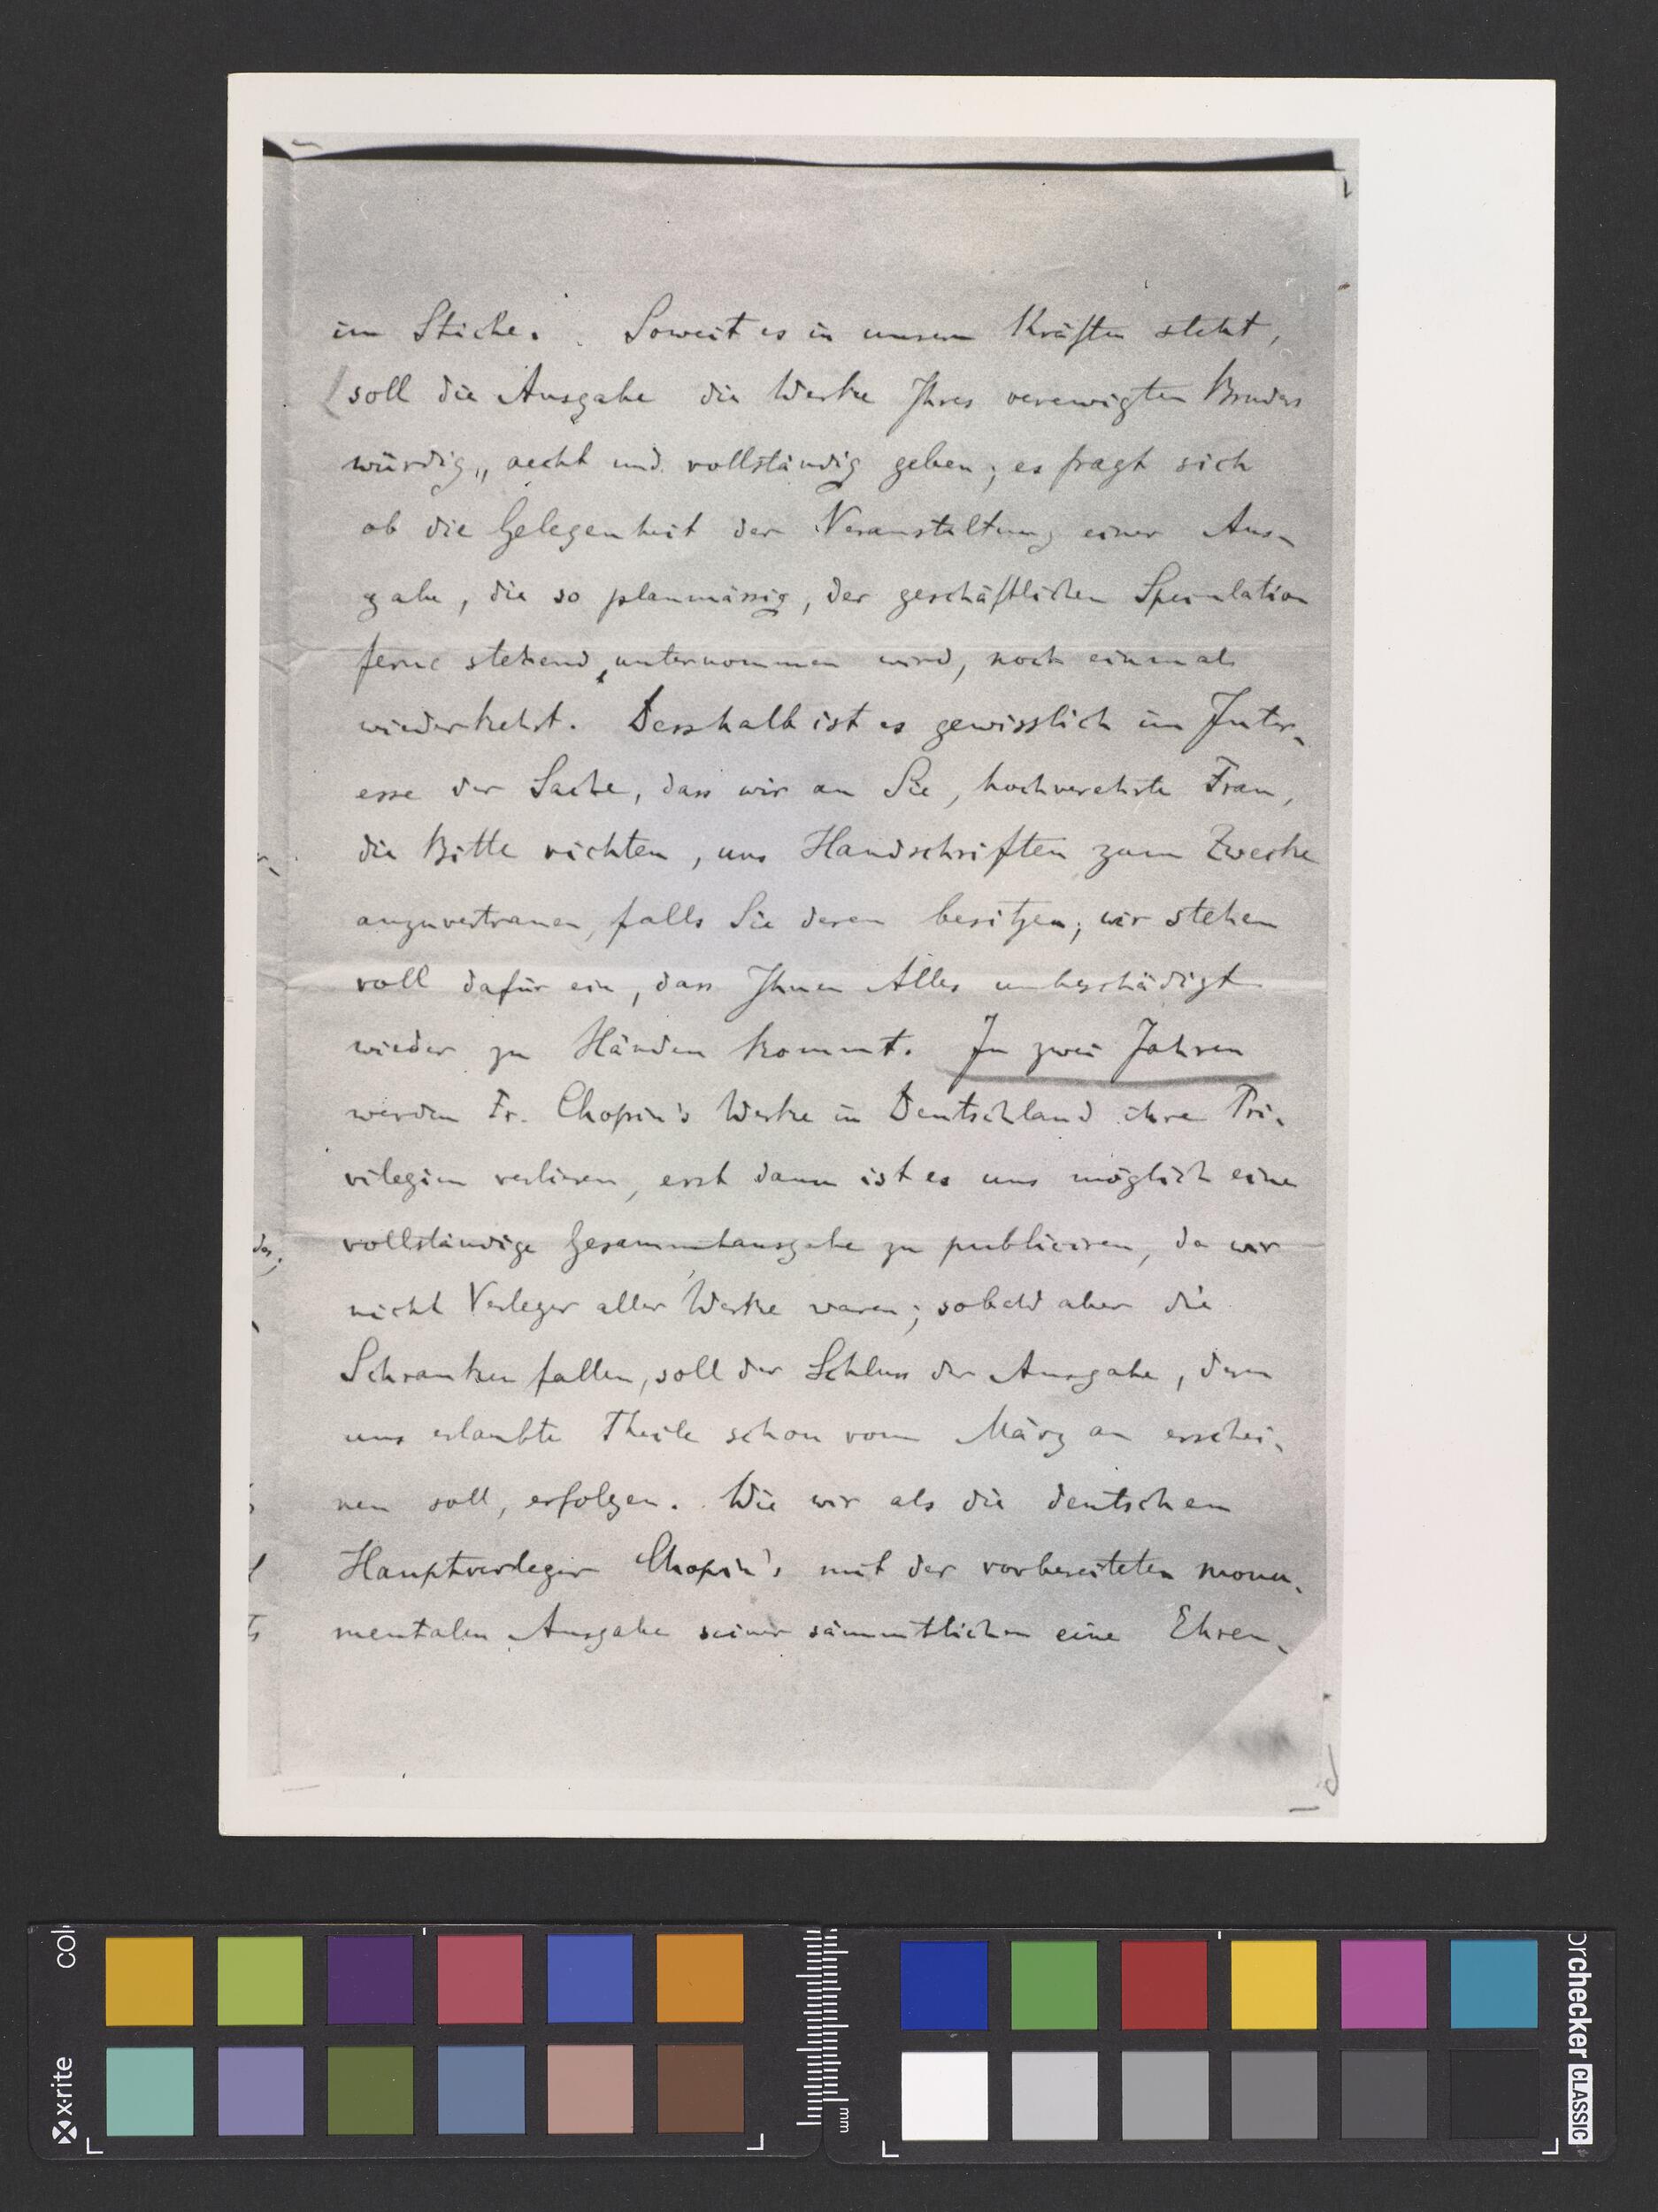 im Stiche. Soweit es in unsern Kräften steht,
soll die Ausgabe die Werke Ihres verewigten Bruders
würdig, aecht und vollständig geben; es fragt sich
ob die Gelegenheit der Veranstaltung einer Aus-
gabe, die so planmässig, der geschäftlichen Speculation
ferne stehend, unternommen wird, noch einmal
wiederkehrt. Desshalb ist es gewisslich im Inter-
esse der Sache, dass wir an Sie, hochverehrte Frau,
die Bitte richten, uns Handschriften zum Zwecke
anzuvertrauen, falls Sie deren besitzen; wir stehen
voll dafür ein, dass Ihnen Alles unbeschädigt
wieder zu Händen kommt. In zwei Jahren
werden Fr. Chopin's Werke in Deutschland ihre Pri-
vilegien verlieren, erst dann ist es uns möglich eine
vollständige Gesammtausgabe zu publiciren, da wir
nicht Verleger aller Werke waren; sobald aber die
Schranken fallen, soll der Schluss der Ausgabe, deren
uns erlaubte Theile schon vom März an erschei-
nen soll, erfolgen. Wie wir als die deutschen
Hauptverleger Chopin's mit der vorbereiteten monu-
mentalen Ausgabe seiner sämmtlichen eine Ehren-
x-rite
col
mm
orchecker CLASSIC